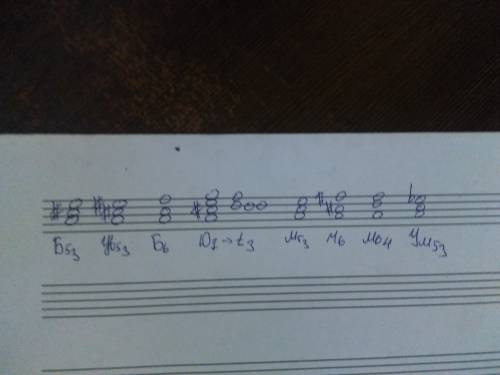 Б53 Ув53 Б6 D7→t3 м53 м6 м64 Ум53